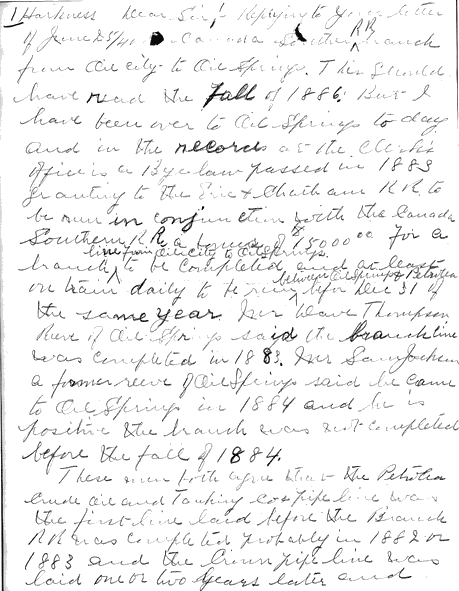 1 Harkness Dear Sir! Replying to your letter
of June 25/41 Canada Southern RR branch
from Oil city to Oil Springs. This should
have read the fall of 1886. But I
have been over to Oil Springs to day
and in the records at the Clerks
office is a Bye law passed in 1883
granting to the Erie & Chatham R.R. to
be run in conjunction with the Canada
Southern R R. a bonus of $ 15000 00 for a
branch line from Oil city to Oil Springs. to be completed and at least
on train daily to be run between Oil Springs & Petrolea befor Dec 31 of
the same year. Mr Dave Thompson
Reeve of Oil Springs said the branch line
was completed in 1883. Mr Sam Jackson
a former reeve of Oil Springs said he came
to Oil Springs in 1884 and he is
positive the branch was not completed
before the fall of 1884.
These men both agree that the Petrolea
Crude Oil and Tanking Cos pipe line was
the first line laid before the Branch
RR was completed probably in 1882 or
1883 and the Crown pipe line was
laid one or two years later and